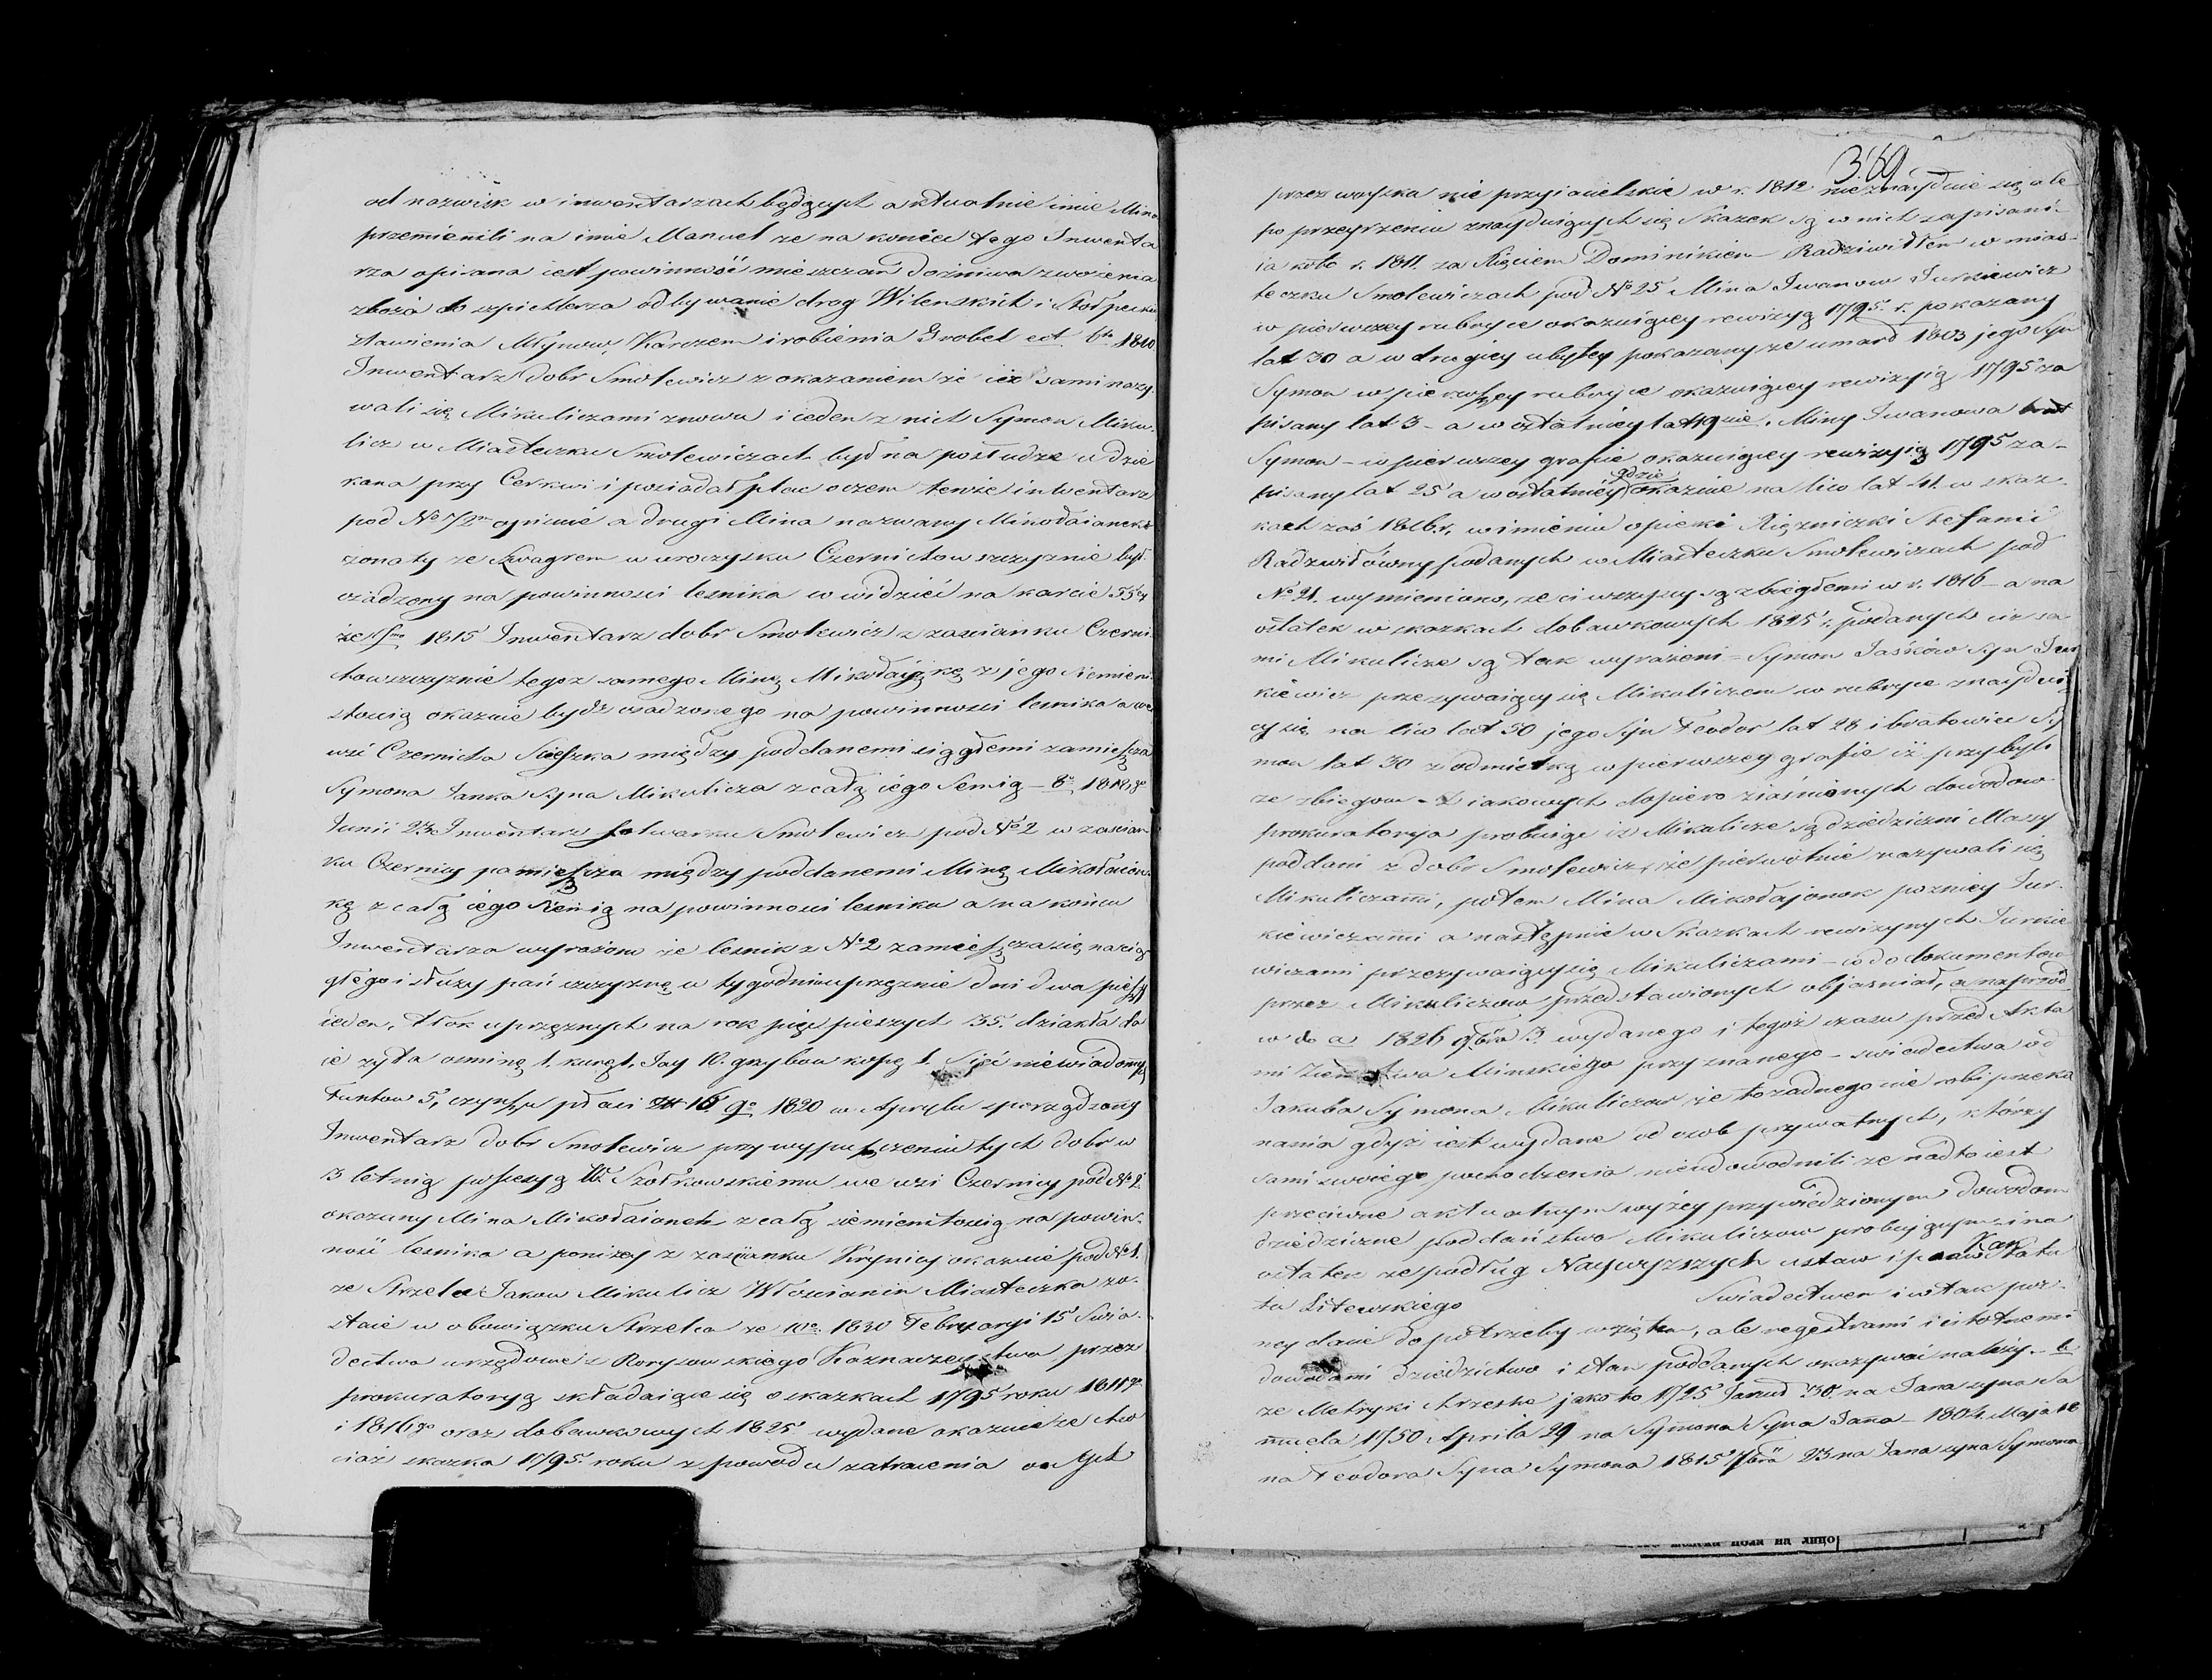 od nazwisk w inwentarzach będących aktualnie imie Mina
przemienili na imie Manuel ze na końcu tego Inwenta
rza opisana iest powinność mieszczan dożniwa zwożenia
zboża do szpichlerza odbywanie drog Wilenskich i Stołpeckich
stawienia Młynow, Karczem i robienia Grobel ect 6to 1810.
Inwentarz dobr Smolewicz z okazaniem że ciż sami nazy-
wali się Mikuliczami znowu i ieden z nich Symon Miku-
licz w Miasteczku Smolewiczach był na posłudze u dzie
kana przy Cerkwi i posiadał plac oczem tenże inwentarz
pod No 72m opiewie a drugi Mina nazwany Mikołaianek
żonaty ze Szwagrem w uroczysku Czernichowszczyznie był
osadzony na powinności lesnika co widzieć na karcie 55ey
że 7mo 1815 Inwentarz dobr Smolewicz z zascianku Czerni-
chowszczyznie tegoż samego Minę Mikołayonkę z jego siemieni
stością okazuie bydź osadzonego na powinności lesnika a we
wsi Czernicha Sieszka między poddanemi ciągłemi zamieszcza
Symona Janka syna Mikulicza z całą iego Semią - 8o 1818go
Junii 23 Inwentarz folwarku Smolewicz pod No 2 w zascian
ku Czernicy pamieszcza między poddanemi Minę Mikołaion-
kę z całą iego Siemią na powinności lesnika a na końcu
Inwentarza wyrażono że lesnik z No 2 zamieszcza się na cią-
głego i służy pańszczyznę w tygodniu uprzężnie dni dwa pieszy
ieden, tłok uprzężnych na rok pięć pieszych 35. dziakła da
ie żyta osminę 1. kurę 1. Jay 10. grzybow kopę 1. Sieć niewiadomych
Funtow 5, czynszu płaci Zł 16 9o 1820 w Aprylu sporządzony
Inwentarz dobr Smolewicz przy wypuszczeniu tych dobr w
3 letnią possesyą W. Szołkowskiemu we wsi Czernicy pod No 2
okazany Mina Mikołaionek z całą siemienitością na powin-
ność lesnika a poniżey z zascianku Krynicy okazuie pod No 1.
że Strzelec Jakow Mikulicz Włoscianin Miasteczka zo-
staie w obowiązku Strzelca że 10o 1830 Februaryi 15 Swia-
dectwa urzędowe z Borysowskiego Kaznaczeystwa przez
prokuratoryą składaiące się o skazkach 1795 roku 1811go
i 1816go oraz dobawkowych 1825 wydane okazuie że cho
ciaż skazka 1795 roku z powodu zatracenia onych
369
przez woyska nieprzyiacielskie w r. 1812 nieznayduie się ale
po przeyrzeniu znayduiących się Skazek są w nich zapisani
ia koto r. 1811. za Xięciem Dominikiem Radziwiłłem w mias-
teczku Smolewiczach pod No 25 Mina Iwanow Jurkiewicz
w pierwszey rubryce okazuiącey rewizyą 1795. r. pokazany
lat 30 a w drugiey ubyłey pokazany że umarł 1803 jego syn
Symon w pierwszey rubryce okazuiącey rewizyią 1795 za
pisany lat 3 - a w ostatniey lat 19nie. Miny Iwanowa brat
Symon - w pierwszey grafie okazuiącey rewizyią 1795 za-
pisany lat 25 a w ostatniey gdzie okazuie na lico lat 41. w skaz-
kach zaś 1816 r. w imieniu opieki Xiężniczki Stefanii
Radziwiłłówny podanych w Miasteczku Smolewiczach pod
No 21. wymieniono, że ci wszyscy są zbiegłemi w r. 1816 - a na
ostatek w skazkach dobawkowych 1825 r. podanych ciż sa
mi Mikulicze są tak wyrażeni - Symon Jaśkow syn Jur
kiewicz przezywaiący się Mikuliczem w rubryce znaydui
cy się na lico lat 50 jego syn Feodor lat 28 i bratowiec Sy
mon lat 30 z odmietką w pierwszey grafie iż przybyli
ze zbiegow - Z iakowych dopiero ziaśnionych dowodow
prokuratorya probuiąc iż Mikulicze są dziedziczni Massy
poddani z dobr Smolewicz, że pierwotnie nazywali się
Mikuliczami, potem Mina Mikołajonok pozniey Jur-
kiewiczami a następnie w Skazkach rewizynych Jurkie
wiczami przezywaiącysię Mikuliczami - co do dokumentow
przez Mikuliczow przedstawionych objasniał, a naprzod
w do a 1826 9bra 3. wydanego i tegoż czasu przed Akta
mi Ziemstwa Minskiego przyznanego - swiadectwa od
Jakuba Symona Mikuliczow że to żadnego nie robi przeka
nania gdyż iest wydane od osob prywatnych, którzy
sami swoiego pochodzenia nieudowodnili że nadto iest
przeciwne aktualnym wyżey przywiedzionym dowodom
dziedziczne poddaństwo Mikuliczow probuiącym - i na
ostatek że podług Naywyższych ustaw i praw Statu
Kar
ta Litewskiego Swiadectwem i wtak poz-
ney dacie do potrzeby wziętem, ale regestrami i istotnemi
dowodami dziedzictwo i stan poddanych okazywać należy. - b.
że Metryki Chrzestne jako to 1725 Januar 30. na Jana syna Sa
muela 1750 Aprila 29 na Symona Syna Jana - 1804 Maja 18
na Feodora Syna Symona 1815 7bra 23 na Jana syna Symona